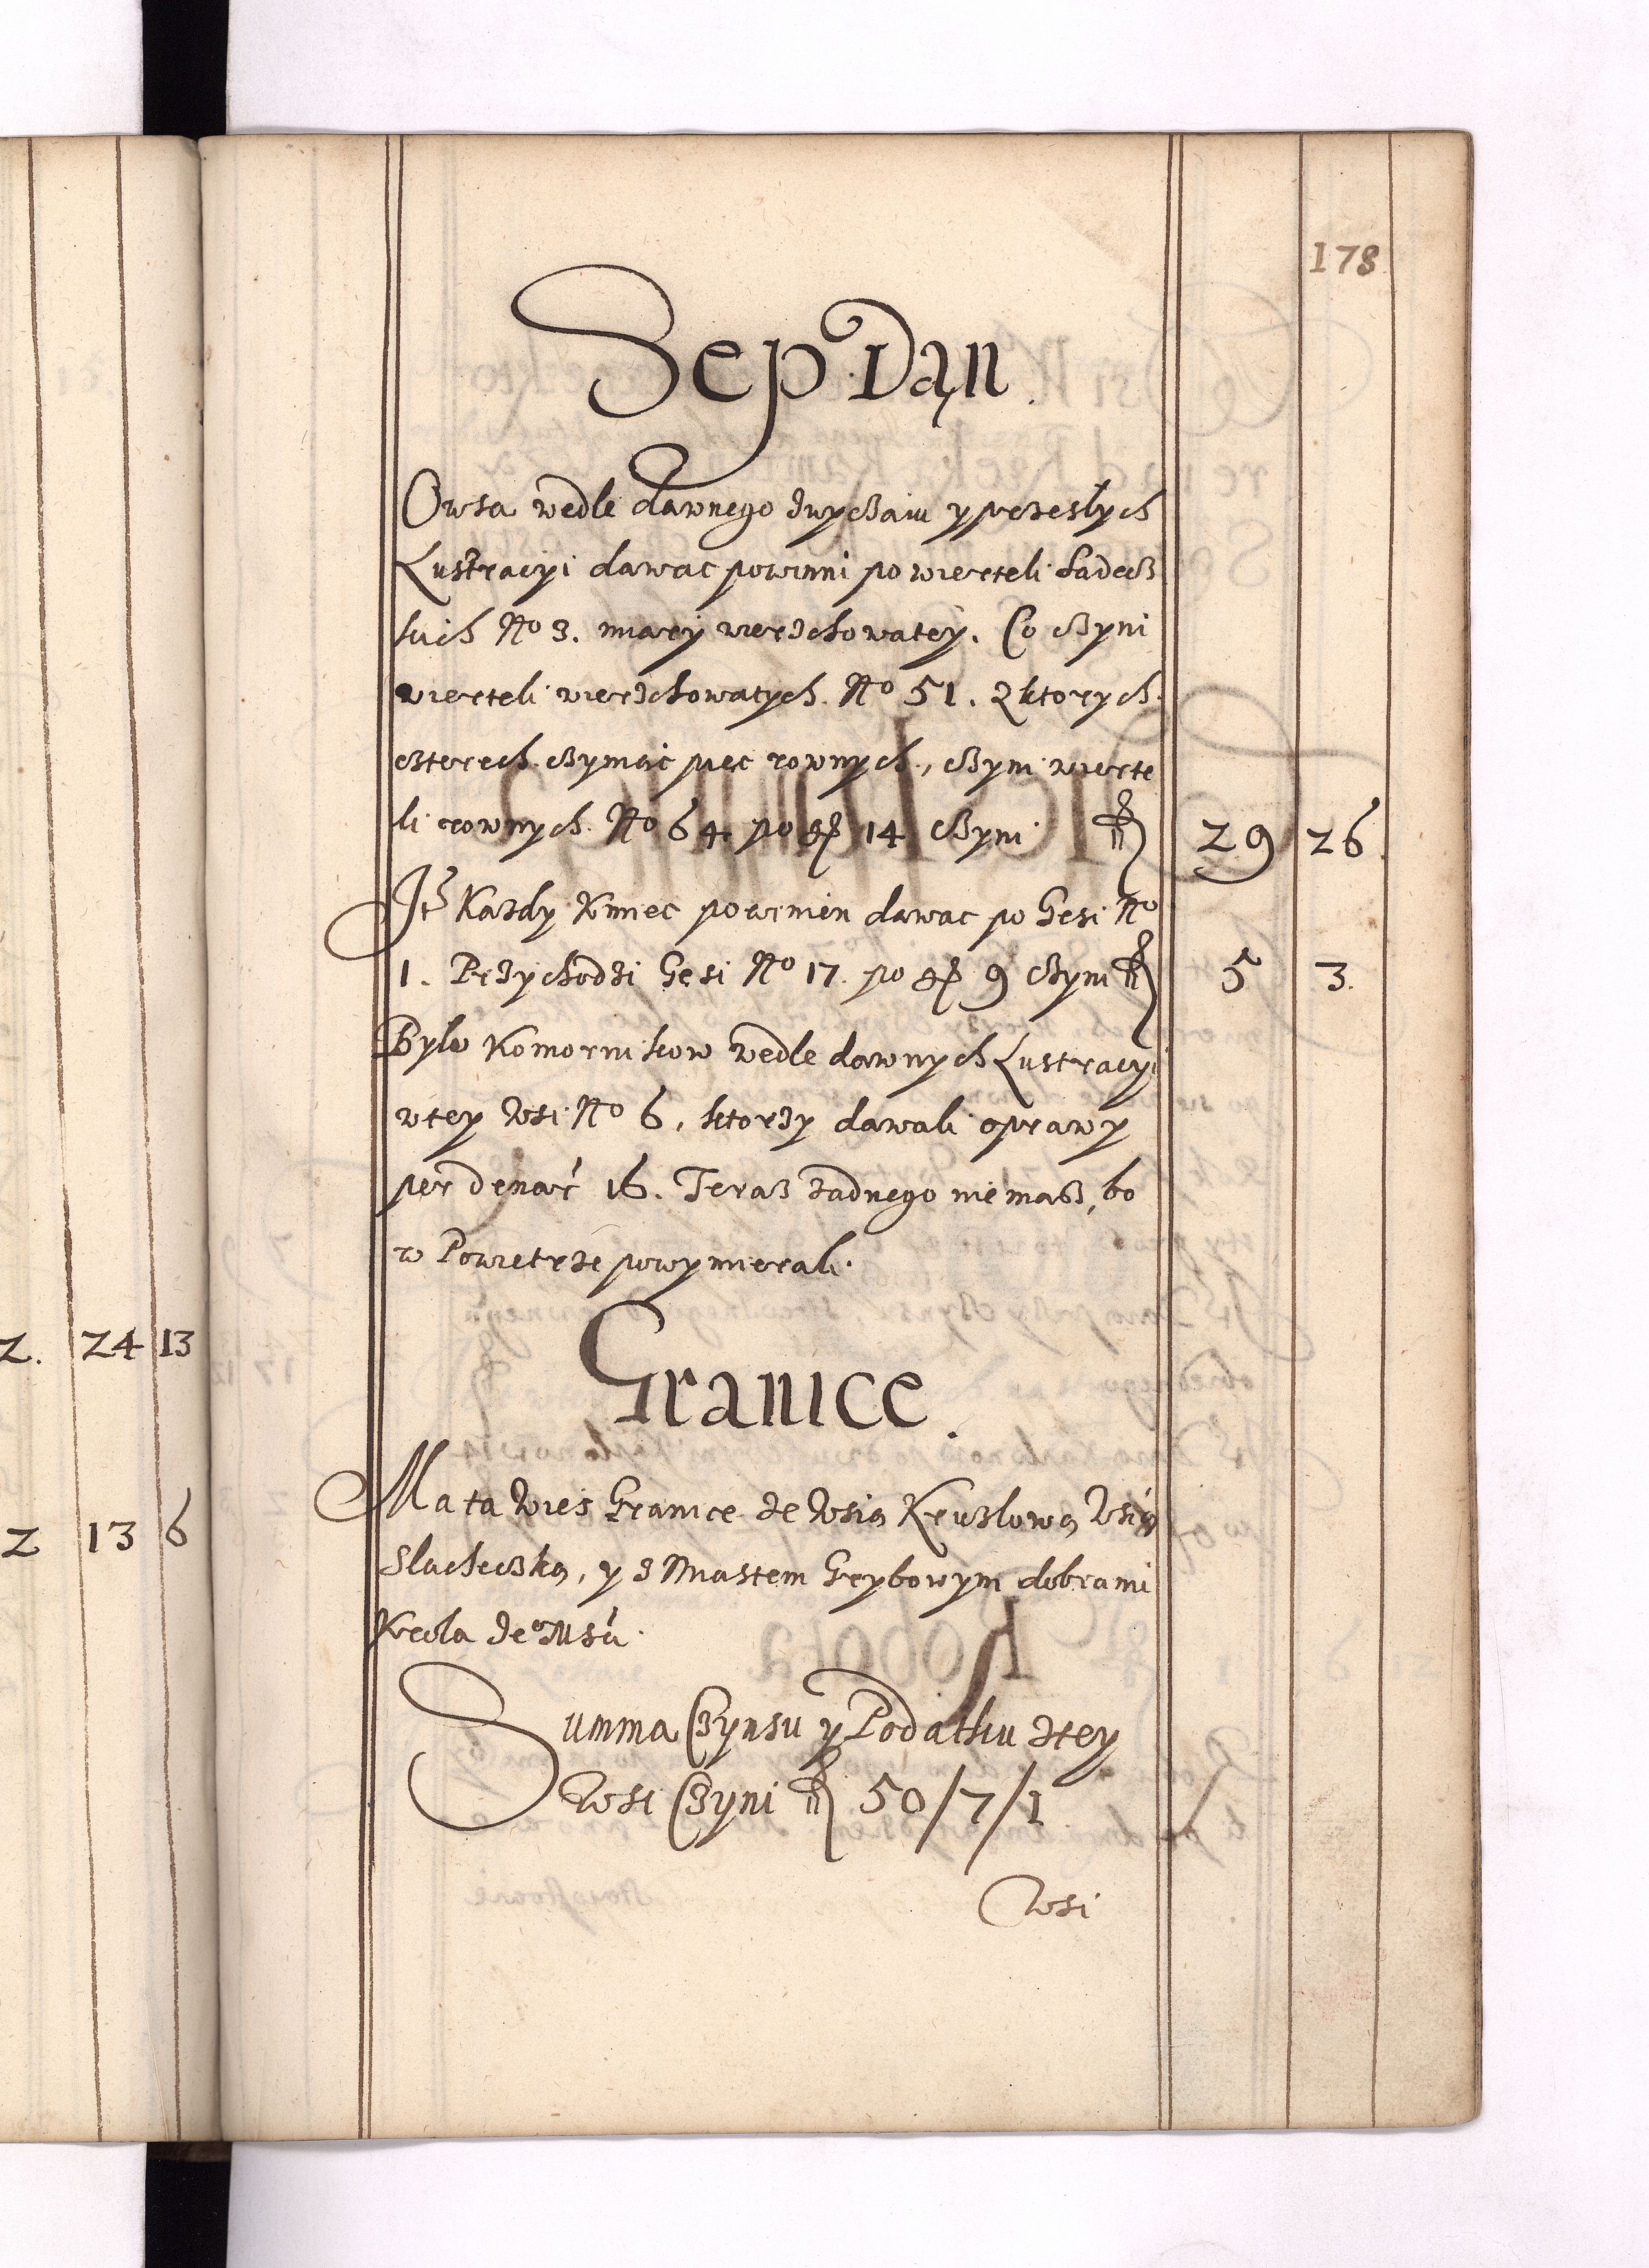 178
Sep Dań.
Owsa wedle dawnego zwyczaiu y przeszlych
Lustracyi dawac powinni po wierteli Sadecz
kich No 3. miary wierzchowatey. Co czyni
wierteli wierzchowatych No 51. Z ktorych
czterech czyniąc pięc rownych, czyni wierte
li rownych No 64 po gr 14 czyni f 29 26
It Kazdy Kmiec powinien dawac po Gesi No
1. Przychodzi Gesi No 17. po gr 9 czyni f 5 3.
Bylo Komornikow wedle dawnych Lustracyi
wtey Wsi No 6, ktorzy dawali oprawy
per denar 16. Teraz zadnego niemasz, bo
w Powietrze powymierali.
Granice.
Ma ta Wies Granice ze Wsią Kruzlową Wsią
Slachecką, y z Miastem Grybowym dobrami
Krola Je° Msci.
Summa Czynsu y Podatku ztey
Wsi Czyni f 50/7/1
Wsi
2. 24 13
2 13 6